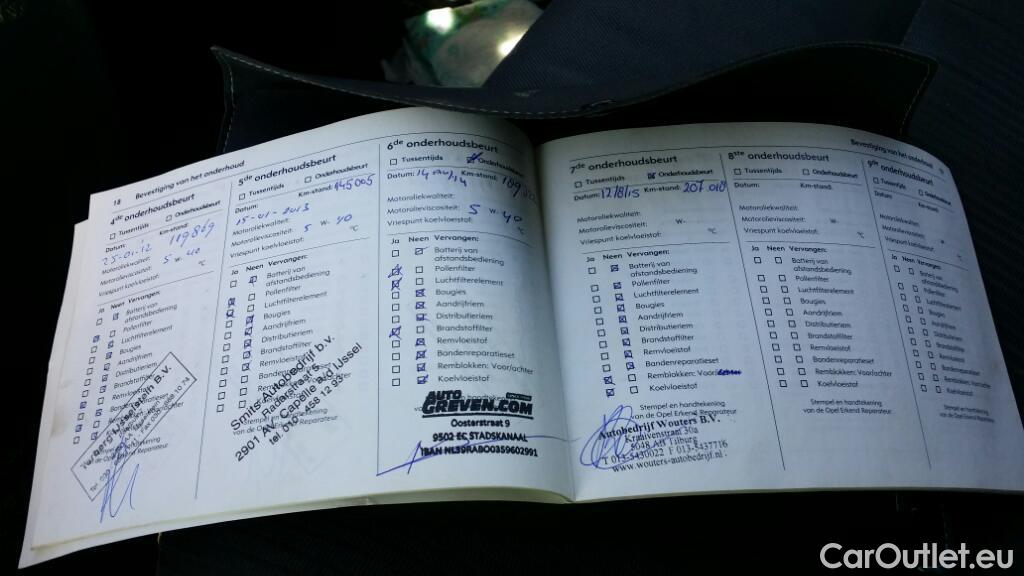 18 Bevestiging van het onderhoud
4de onderhoudsbeurt
Tussentijds Onderhoudsbeurt
Datum: Km-stand:
25-01-12 119869
Motoroliekwaliteit:
Motorolieviscositeit: 5 W- 40
Vriespunt koelvloeistof: °C
Ja Neen Vervangen:
Batterij van
afstandsbediening
Pollenfilter
Luchtfilterelement
Bougies
Aandrijfriem
Distributieriem
Brandstoffilter
Remvloeistof
5de onderhoudsbeurt
Tussentijds Onderhoudsbeurt
Datum: Km-stand: 145005
15-01-2013
Motoroliekwaliteit:
Motorolieviscositeit: 5 W- 40
Vriespunt koelvloeistof: °C
Ja Neen Vervangen:
Batterij van
afstandsbediening
Pollenfilter
Luchtfilterelement
Bougies
Aandrijfriem
Distributieriem
Brandstoffilter
Remvloeistof
Bandenreparatieset
Remblokken: Voor/achter
Koelvloeistof
Smits Autobedrijf b.v.
2901 AV Capelle a/d IJssel
tel. 010-458 12 93
6de onderhoudsbeurt
Tussentijds Onderhoudsbeurt
Datum: Km-stand:
Motoroliekwaliteit:
Motorolieviscositeit: 5 W- 40
Vriespunt koelvloeistof: °C
Ja Neen Vervangen:
Batterij van
afstandsbediening
Pollenfilter
Luchtfilterelement
Bougies
Aandrijfriem
Distributieriem
Brandstoffilter
Remvloeistof
Bandenreparatieset
Remblokken: Voor/achter
Koelvloeistof
AUTO
GREVEN.COM
Oosterstraat 9
9502 EC STADSKANAAL
IBAN NL39RABO0359602991
Bevestiging van het onderhoud
7de onderhoudsbeurt
Tussentijds Onderhoudsbeurt
Datum: 12/8/15 Km-stand: 207 018
Motoroliekwaliteit:
Motorolieviscositeit: W-
Vriespunt koelvloeistof: °C
Ja Neen Vervangen:
Batterij van
afstandsbediening
Pollenfilter
Luchtfilterelement
Bougies
Aandrijfriem
Distributieriem
Brandstoffilter
Remvloeistof
Bandenreparatieset
Remblokken:
Koelvloeistof
Stempel en handtekening
van de Opel Erkend Reparateur
Autobedrijf Wouters B.V.
Kraaivenstraat 30a
5048 AB Tilburg
T 013-5430022 F 013-5437716
www.wouters-autobedrijf.nl
8ste onderhoudsbeurt
Tussentijds Onderhoudsbeurt
Datum: Km-stand:
Motoroliekwaliteit:
Motorolieviscositeit: W-
Vriespunt koelvloeistof: °C
Ja Neen Vervangen:
Batterij van
afstandsbediening
Pollenfilter
Luchtfilterelement
Bougies
Aandrijfriem
Distributieriem
Brandstoffilter
Remvloeistof
Bandenreparatieset
Remblokken: Voor/achter
Koelvloeistof
Stempel en handtekening
van de Opel Erkend Reparateur
9de onderhoudsbeurt
Tussentijds Onderhoudsbeurt
Datum: Km-stand:
Motoroliekwaliteit:
Motorolieviscositeit: W-
Vriespunt koelvloeistof: °C
Ja Neen Vervangen:
Batterij van
afstandsbediening
Pollenfilter
Luchtfilterelement
Bougies
Aandrijfriem
Distributieriem
Brandstoffilter
Remvloeistof
Bandenreparatieset
Remblokken: Voor/achter
Koelvloeistof
CarOutlet.eu